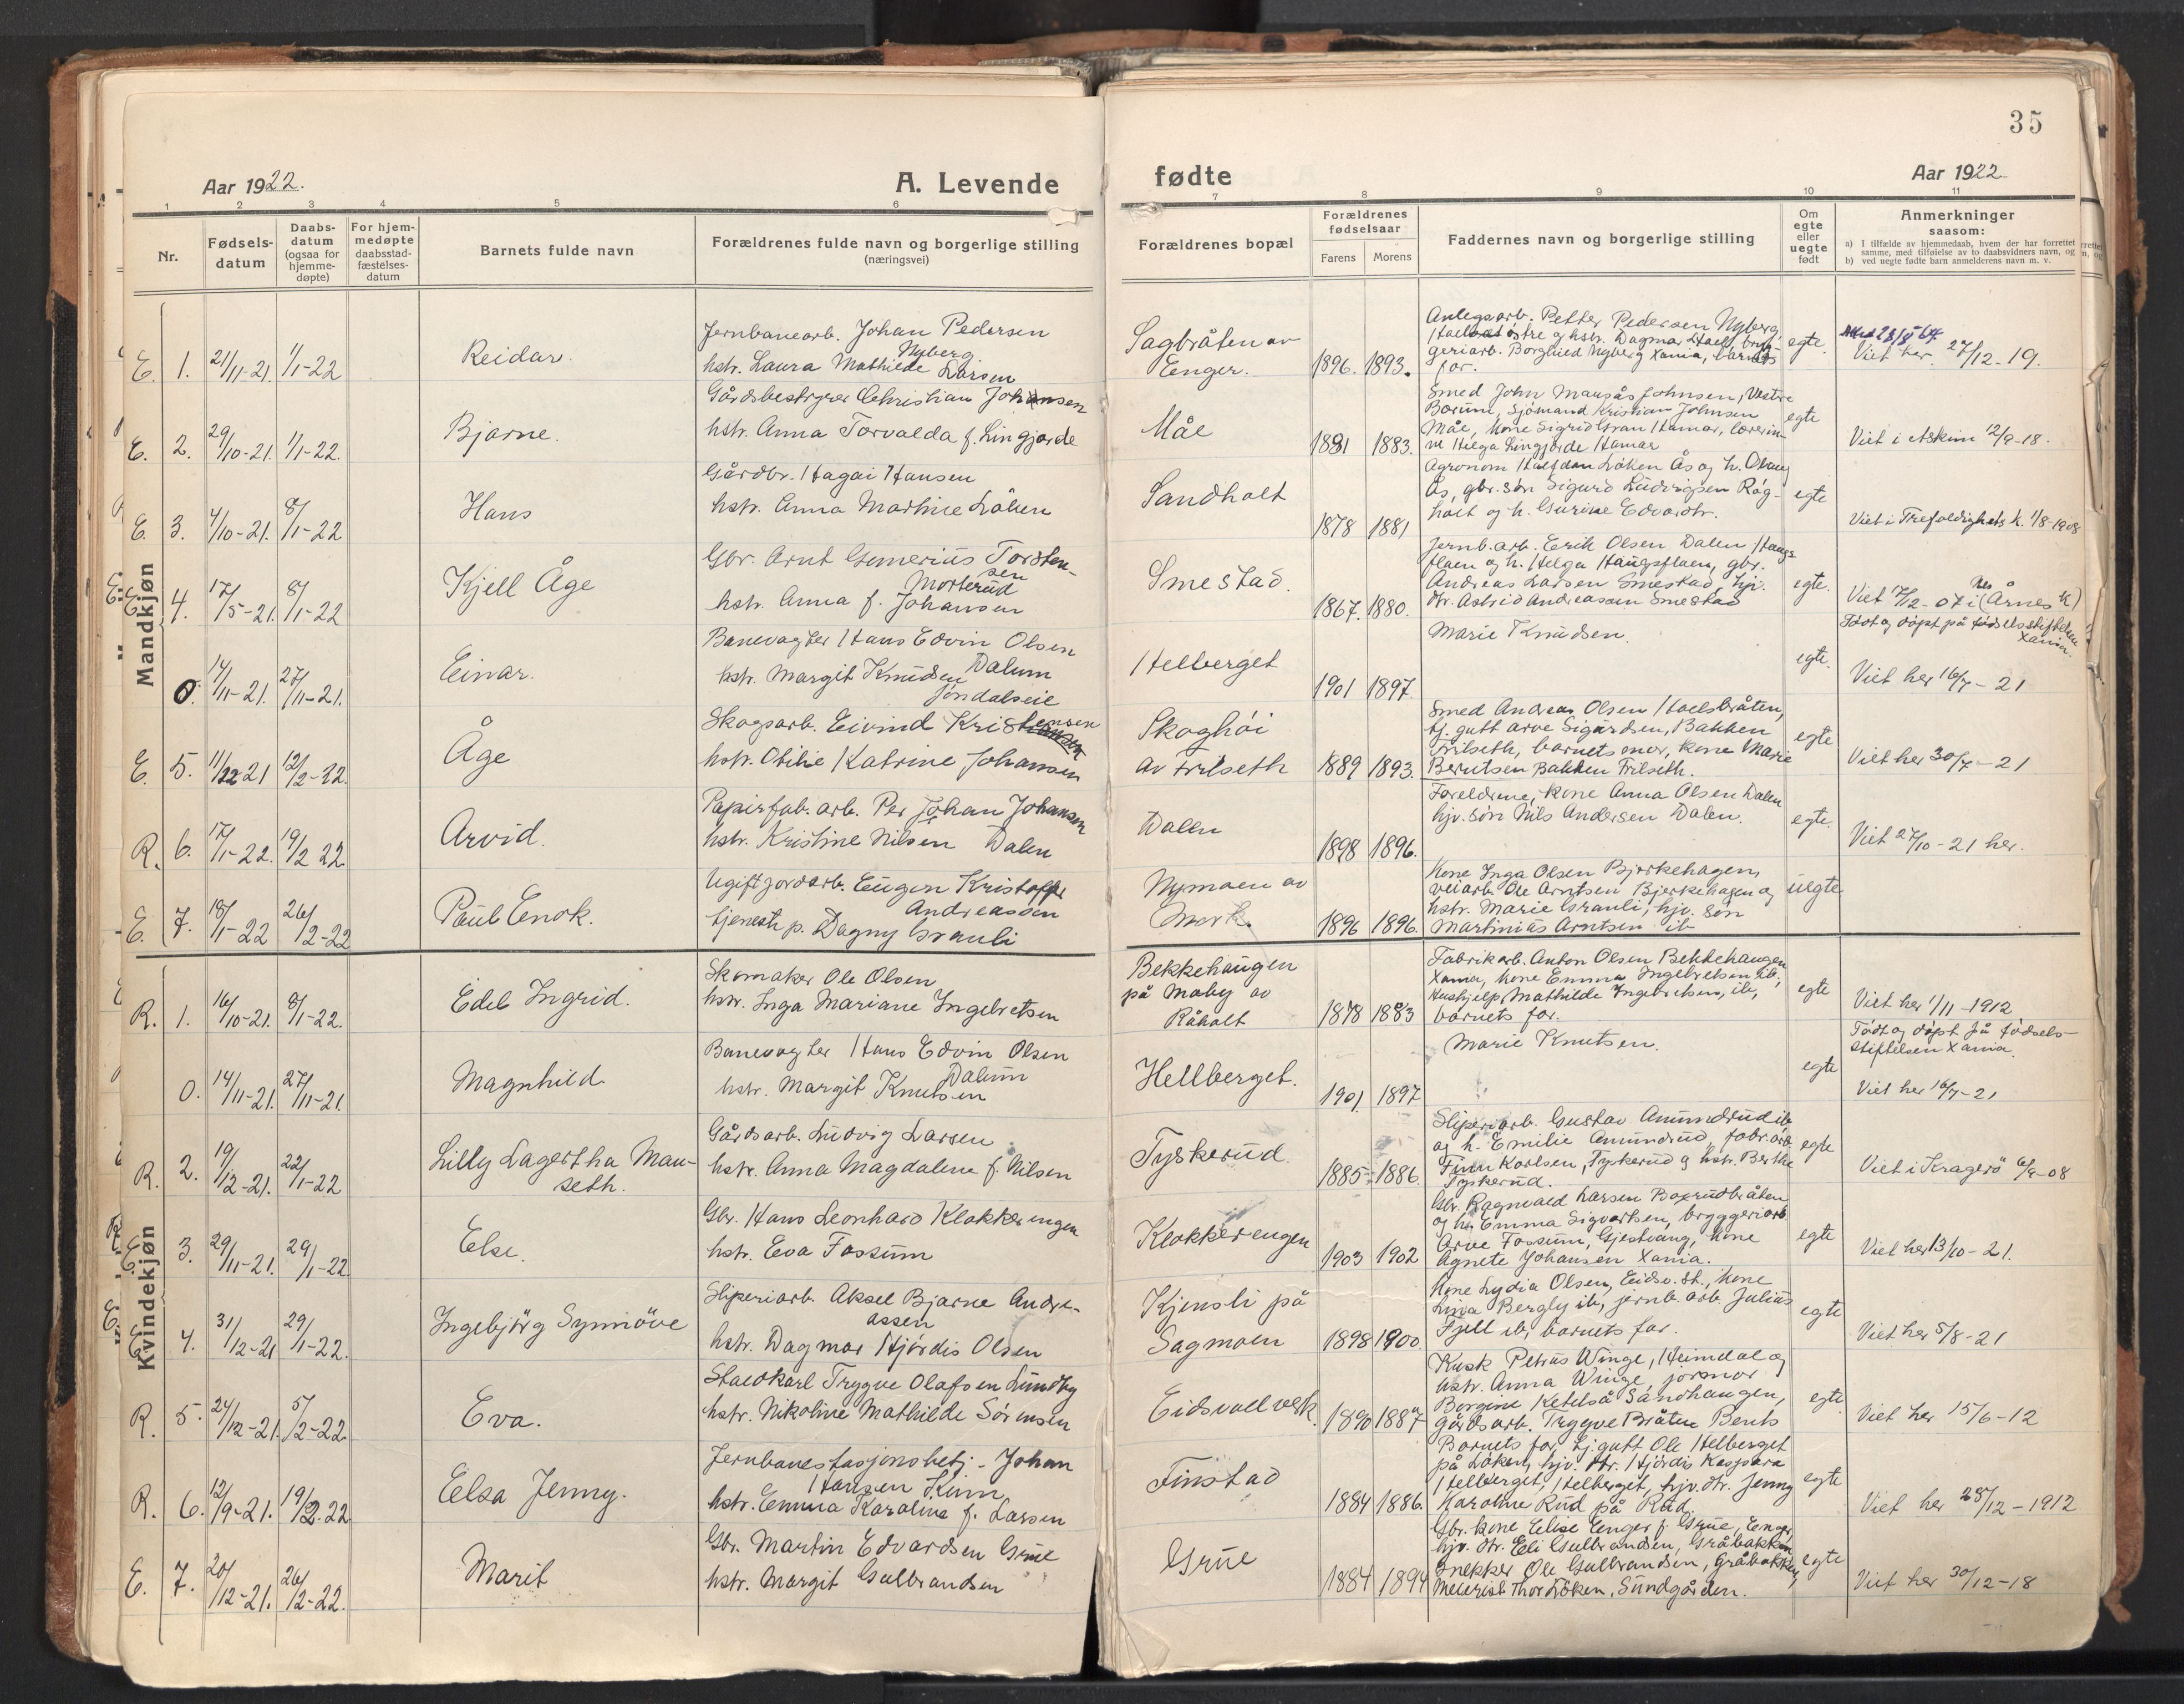 35
Aar 1922.
A. Levende
fødte
Aar 1922
1 2 3 4 5 6 7 8 9 10 11
Nr.
Fødsels-
datum
Daabs-
datum
(ogsaa for
hjemme-
døpte)
For hjem-
medøpte
daabsstad-
fæstelses-
datum
Barnets fulde navn
Forældrenes fulde navn og borgerlige stilling
(næringsvei)
Forældrenes bopæl
Forældrenes
fødselsaar
Farens Morens
Faddernes navn og borgerlige stilling
Om
egte
eller
uegte
født
Anmerkninger
saasom:
a) I tilfælde av hjemmedaab, hvem der har forrettet
samme, med tilføielse av to daabsvidners navn, og
b) ved uegte fødte barn anmelderens navn m. v.
Mandkjøn
E. 1. 21/11-21. 1/1-22
Reidar.
Jernbanearb. Johan Pedersen
Nyberg.
hstr. Laura Mathilde Larsen
Sagbråten av
Enger.
1896. 1893.
Anlegsarb. Petter Pedersen Nyberg,
østre og hstr. Dagmar
geriarb. Borghild Nyberg Xania, barnets
far.
egte.
Viet her 27/12-19.
E. 2. 29/10-21. 1/1-22.
Bjarne.
Gårdsbestyrer Christian Johnsen
hstr. Anna Torvalda f. Lingjorde
Måe
1881 1883.
Smed John Mausås Johnsen, Vestre
Borum, Sjömand Kristian Johnsen
Måe, kone Sigrid Gran Hamar, lærerin-
ne Helga Lingjorde Hamar
egte
Viet i Askim 12/9-18.
E. 3. 4/10-21. 8/1-22
Hans
Gårdbr. Hagai Hansen
hstr. Anna Martine Löken
Sandholt
1878 1881
Agronom Halfdan Löken Ås og h. Olaug
Ås, gbr. sön Sigurd Ludvigsen Råg-
holt og h. Gurine Edvardtr.
egte
Viet i Trefoldighets k. 1/8-1908
E. 4. 17/5-21. 8/1-22
Kjell Åge
Gbr. Arnt Gomerius Torsten-
sen
Morterud
hstr. Anna f. Johansen
Smestad.
1867. 1880.
Jernb.arb. Erik Olsen Dalen Haugs
flaen og h. Helga Haugsflaen, gbr.
Andreas Larsen Smestad, hjv.
dtr. Astrid Andreassen Smestad
egte.
Viet 17/12-07 i (Årnes k)
0. 14/11-21. 27/11-21.
Einar.
Banevogter Hans Edvin Olsen
Dalum
hstr. Margit Knudsen
Jöndalseie
Helberget
1901 1897.
Marie Knudsen.
egte.
Födt og döpt på födselsstiftelsen
Xania.
Viet her 16/7-21
E. 5. 11/12 21 12/2-22.
Åge
Skogsarb. Eivind Kristensen
hstr. Otilie Katrine Johansen
Skoghöi
av Frilseth
1889 1893.
Smed Andreas Olsen Hoelsbråten,
tj. gutt Arve Sigurdsen, Bakken
Frilseth, barnets mor, kone Marie
Berntsen Bakken Frilseth.
egte
Viet her 30/7-21
R. 6. 17/1-22. 19/2 22.
Arvid.
Papirfab. arb. Per Johan Johansen
hstr. Kristine Nilsen Dalen
Dalen
1898 1896.
Foreldrene, kone Anna Olsen Dalen
hjv. sön Nils Andersen Dalen.
egte.
Viet 27/10-21 her.
E. 7. 18/1-22 26/2-22
Paul Enok.
Ugift jordarb. Eugen Kristoffer
Andreassen
tjenestp. Dagny Grauli
Nymoen av
Mork.
1896 1896.
Kone Inga Olsen Bjerkehagen,
veiarb. Ole Arntsen Bjerkehagen og
hstr. Marie Grauli, hjv. sön
Martinius Arntsen ib
uegte
Kvindekjøn
R. 1. 16/10-21. 8/1-22.
Edel Ingrid.
Skomaker Ole Olsen
hstr. Inga Mariane Ingebretsen
Bekkehaugen
på Moby av
Råholt
1878 1883
Fabrikarb. Anton Olsen Bekkehaugen
Xania, kone Emma Ingebretsen ib,
Hushjelp Mathilde Ingebretsen, ib,
barnets far.
egte
Viet her 1/11-1912
0. 14/11-21. 27/11-21.
Magnhild
Banevogter Hans Edvin Olsen
Dalum
hstr. Margit Knutsen
Hellberget.
1901. 1897
Marie Knutsen.
egte
Födt og döpt på födsels-
stiftelsen Xania.
Viet her 16/7-21
R. 2. 19/12-21. 22/1-22
Lilly Lagertha Mau-
seth.
Gårdsarb. Ludvig Larsen
hstr. Anna Magdalene f. Nilsen
Tyskerud
1885 1886.
Sliperiarb. Gustav Amundrud ib
og h. Emilie Amundrud, fabr. arb
Finn Karlsen, Tyskerud og hstr. Berthe
Tyskerud.
egte
Viet i Kragerö 6/9-08
3. 29/11-21. 29/1-22
Else.
Gbr. Hans Leonhard Klokkerengen
hstr. Eva Fossum
Klokkerengen
1903 1902
Gbr. Ragnvald Larsen Boprudbråten
og h. Emma Sigvartsen, bryggeriarb
Arve Fossum, Gjestvang, kone
Agnete Johansen Xania.
egte
Viet her 13/10-21.
4. 31/12-21 29/1-22.
Ingebjörg Synnöve
Sliperiarb. Aksel Bjarne Andre-
assen
hstr. Dagmar Hjördis Olsen
Kjensli på
Sagmoen
1898 1900.
Kone Lydia Olsen, Eidsv. St., kone
Lina Bergly ib, jernb. arb. Julius
Fjell ib, barnets far.
egte
Viet her 5/8-21
R. 5. 24/12-21. 5/2-22.
Eva.
Staldkarl Trygve Olafsen Lundby
hstr. Nikoline Mathilde Sörensen
Eidsvoll verk.
1890 1887
Kusk Petrus Winge, Heimdal og
hstr. Anna Winge, jormor
Borgine Ketelså Sandhaugen,
gårdsarb. Trygve Bråten Bents
egte.
Viet her 15/6-12
R. 6. 12/9-21. 19/2.22
Elsa Jenny.
Jernbanestasjonsbetj. Johan
Hansen Finn
hstr. Emma Karoline f. Larsen
Finstad
1884 1886.
Barnets far, tj. gutt Ole Helberget
på Löken, hjv. dtr. Hjördis Kaspara
Helberget, Helberget, hjv. dtr. Jenny
Karoline Rud på Rud.
egte
Viet her 28/12-1912
E. 7. 20/12-21. 26/2-22.
Marit
Gbr. Martin Edvardsen Grue
hstr. Margit Gulbrandsen
Grue
1884 1894
Gbr. kone Elise Enger f. Grue, Enger,
hjv. dtr. Eli Gulbrandsen, Gråbakken
snekker Ole Gulbrandsen, Gråbakken,
meierist Thor Löken, Sundgården.
egte
Viet her 30/12-18